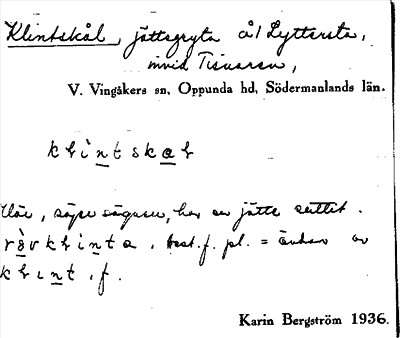 Klintskål, jättegryta å/ Lyttersta,
invid Tisnaren,
V. Vingåkers sn, Oppunda hd, Södermanlands län.
klintskal
Här, säger sägnen, har en jätte suttit.
rövklinta, best. f. pl. = ändan av
klint, f.
Karin Bergström 1936.